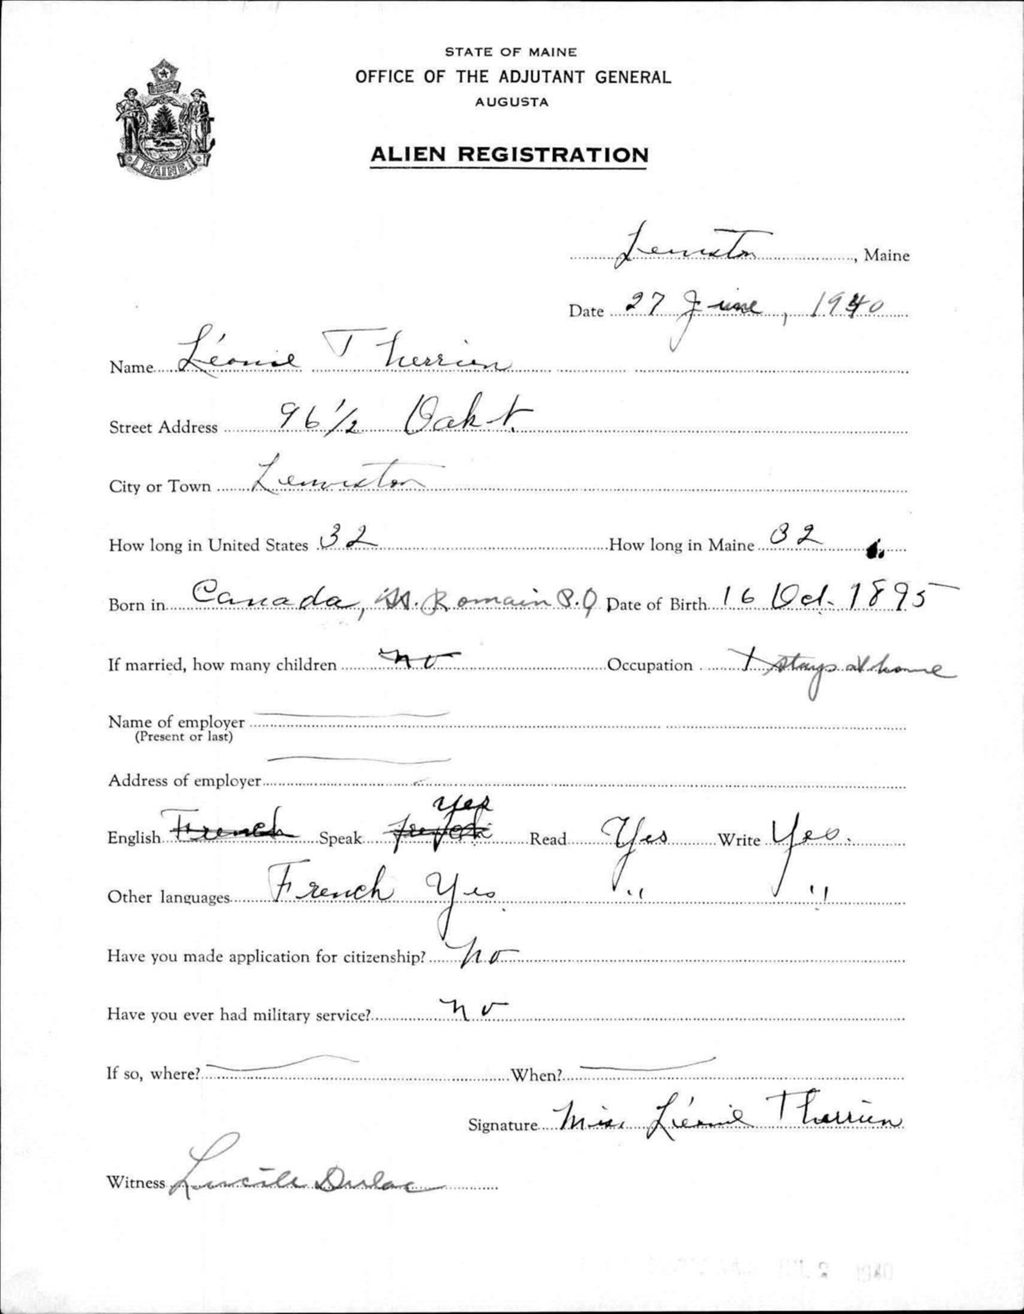 STATE OF MAINE
OFFICE OF THE ADJUTANT GENERAL
AUGUSTA
ALIEN REGISTRATION
MAINE
Lewiston, Maine
Date 27 June, 1940
Name Léonie Therrien
Street Address 96 1/2 Oak St.
City or Town Lewiston
How long in United States 32 How long in Maine 32
Born in Canada, St. Romain P.Q Date of Birth 16 Oct. 1895
If married, how many children no Occupation stays at home
Name of employer
(Present or last)
Address of employer
Yes
English French Speak Read Yes Write Yes.
Other languages French Yes " "
Have you made application for citizenship? no
Have you ever had military service? no
If so, where? When?
Signature Miss. Léonie Therrien
Witness Lucille Dulac
2 1940